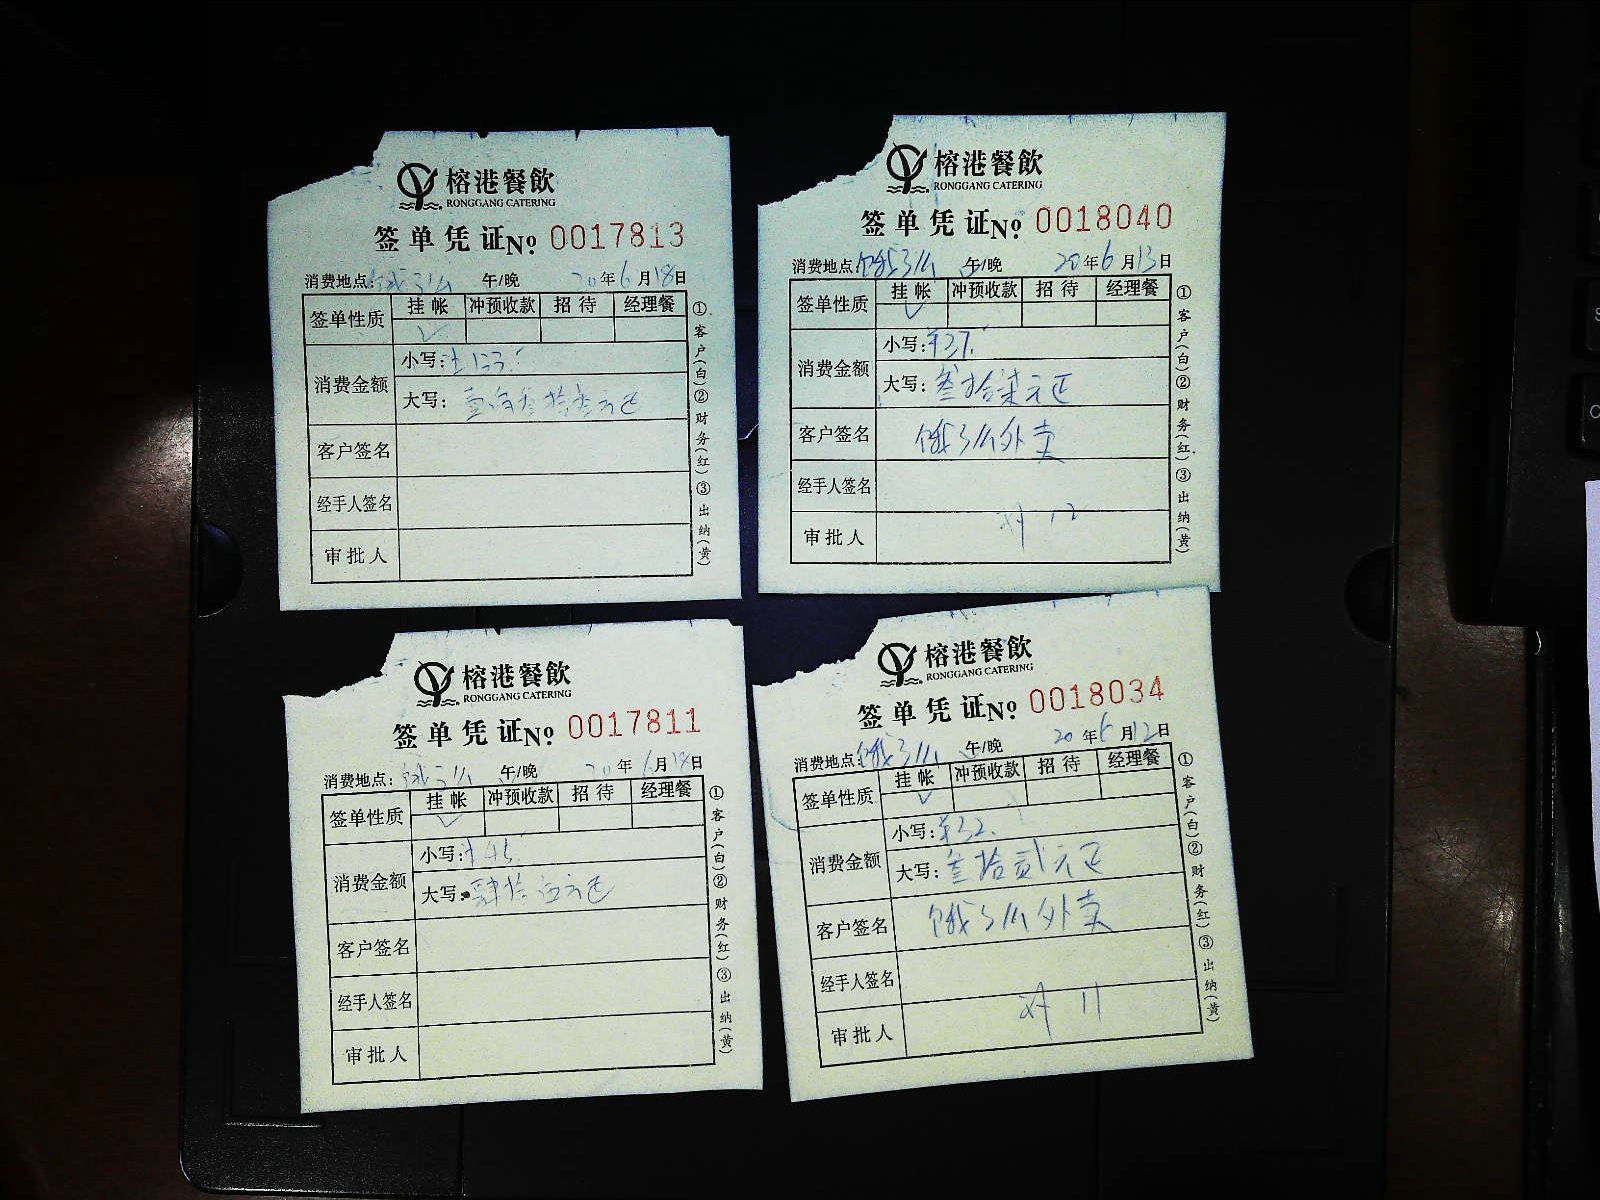 榕港餐飲
RONGGANG CATERING
签单凭证№ 0017813
消费地点:饿了么 午/晚 20年6月18日
签单性质 挂帐 冲预收款 招待 经理餐
✓
消费金额 小写:¥133.
大写: 壹佰叁拾叁元正
客户签名
经手人签名
审批人
①客户(白)②财务(红)③出纳(黄)
榕港餐飲
RONGGANG CATERING
签单凭证№ 0018040
消费地点:饿了么 午/晚 20年6月13日
签单性质 挂帐 冲预收款 招待 经理餐
✓
消费金额 小写:¥37.
大写: 叁拾柒元正
客户签名 饿了么外卖
经手人签名
审批人
①客户(白)②财务(红)③出纳(黄)
榕港餐飲
RONGGANG CATERING
签单凭证№ 0017811
消费地点:饿了么 午/晚 20年6月18日
签单性质 挂帐 冲预收款 招待 经理餐
✓
消费金额 小写:¥45.
大写: 肆拾伍元正
客户签名
经手人签名
审批人
①客户(白)②财务(红)③出纳(黄)
榕港餐飲
RONGGANG CATERING
签单凭证№ 0018034
消费地点:饿了么 午/晚 20年6月12日
签单性质 挂帐 冲预收款 招待 经理餐
✓
消费金额 小写:¥32.
大写: 叁拾贰元正
客户签名 饿了么外卖
经手人签名
审批人 对 11
①客户(白)②财务(红)③出纳(黄)